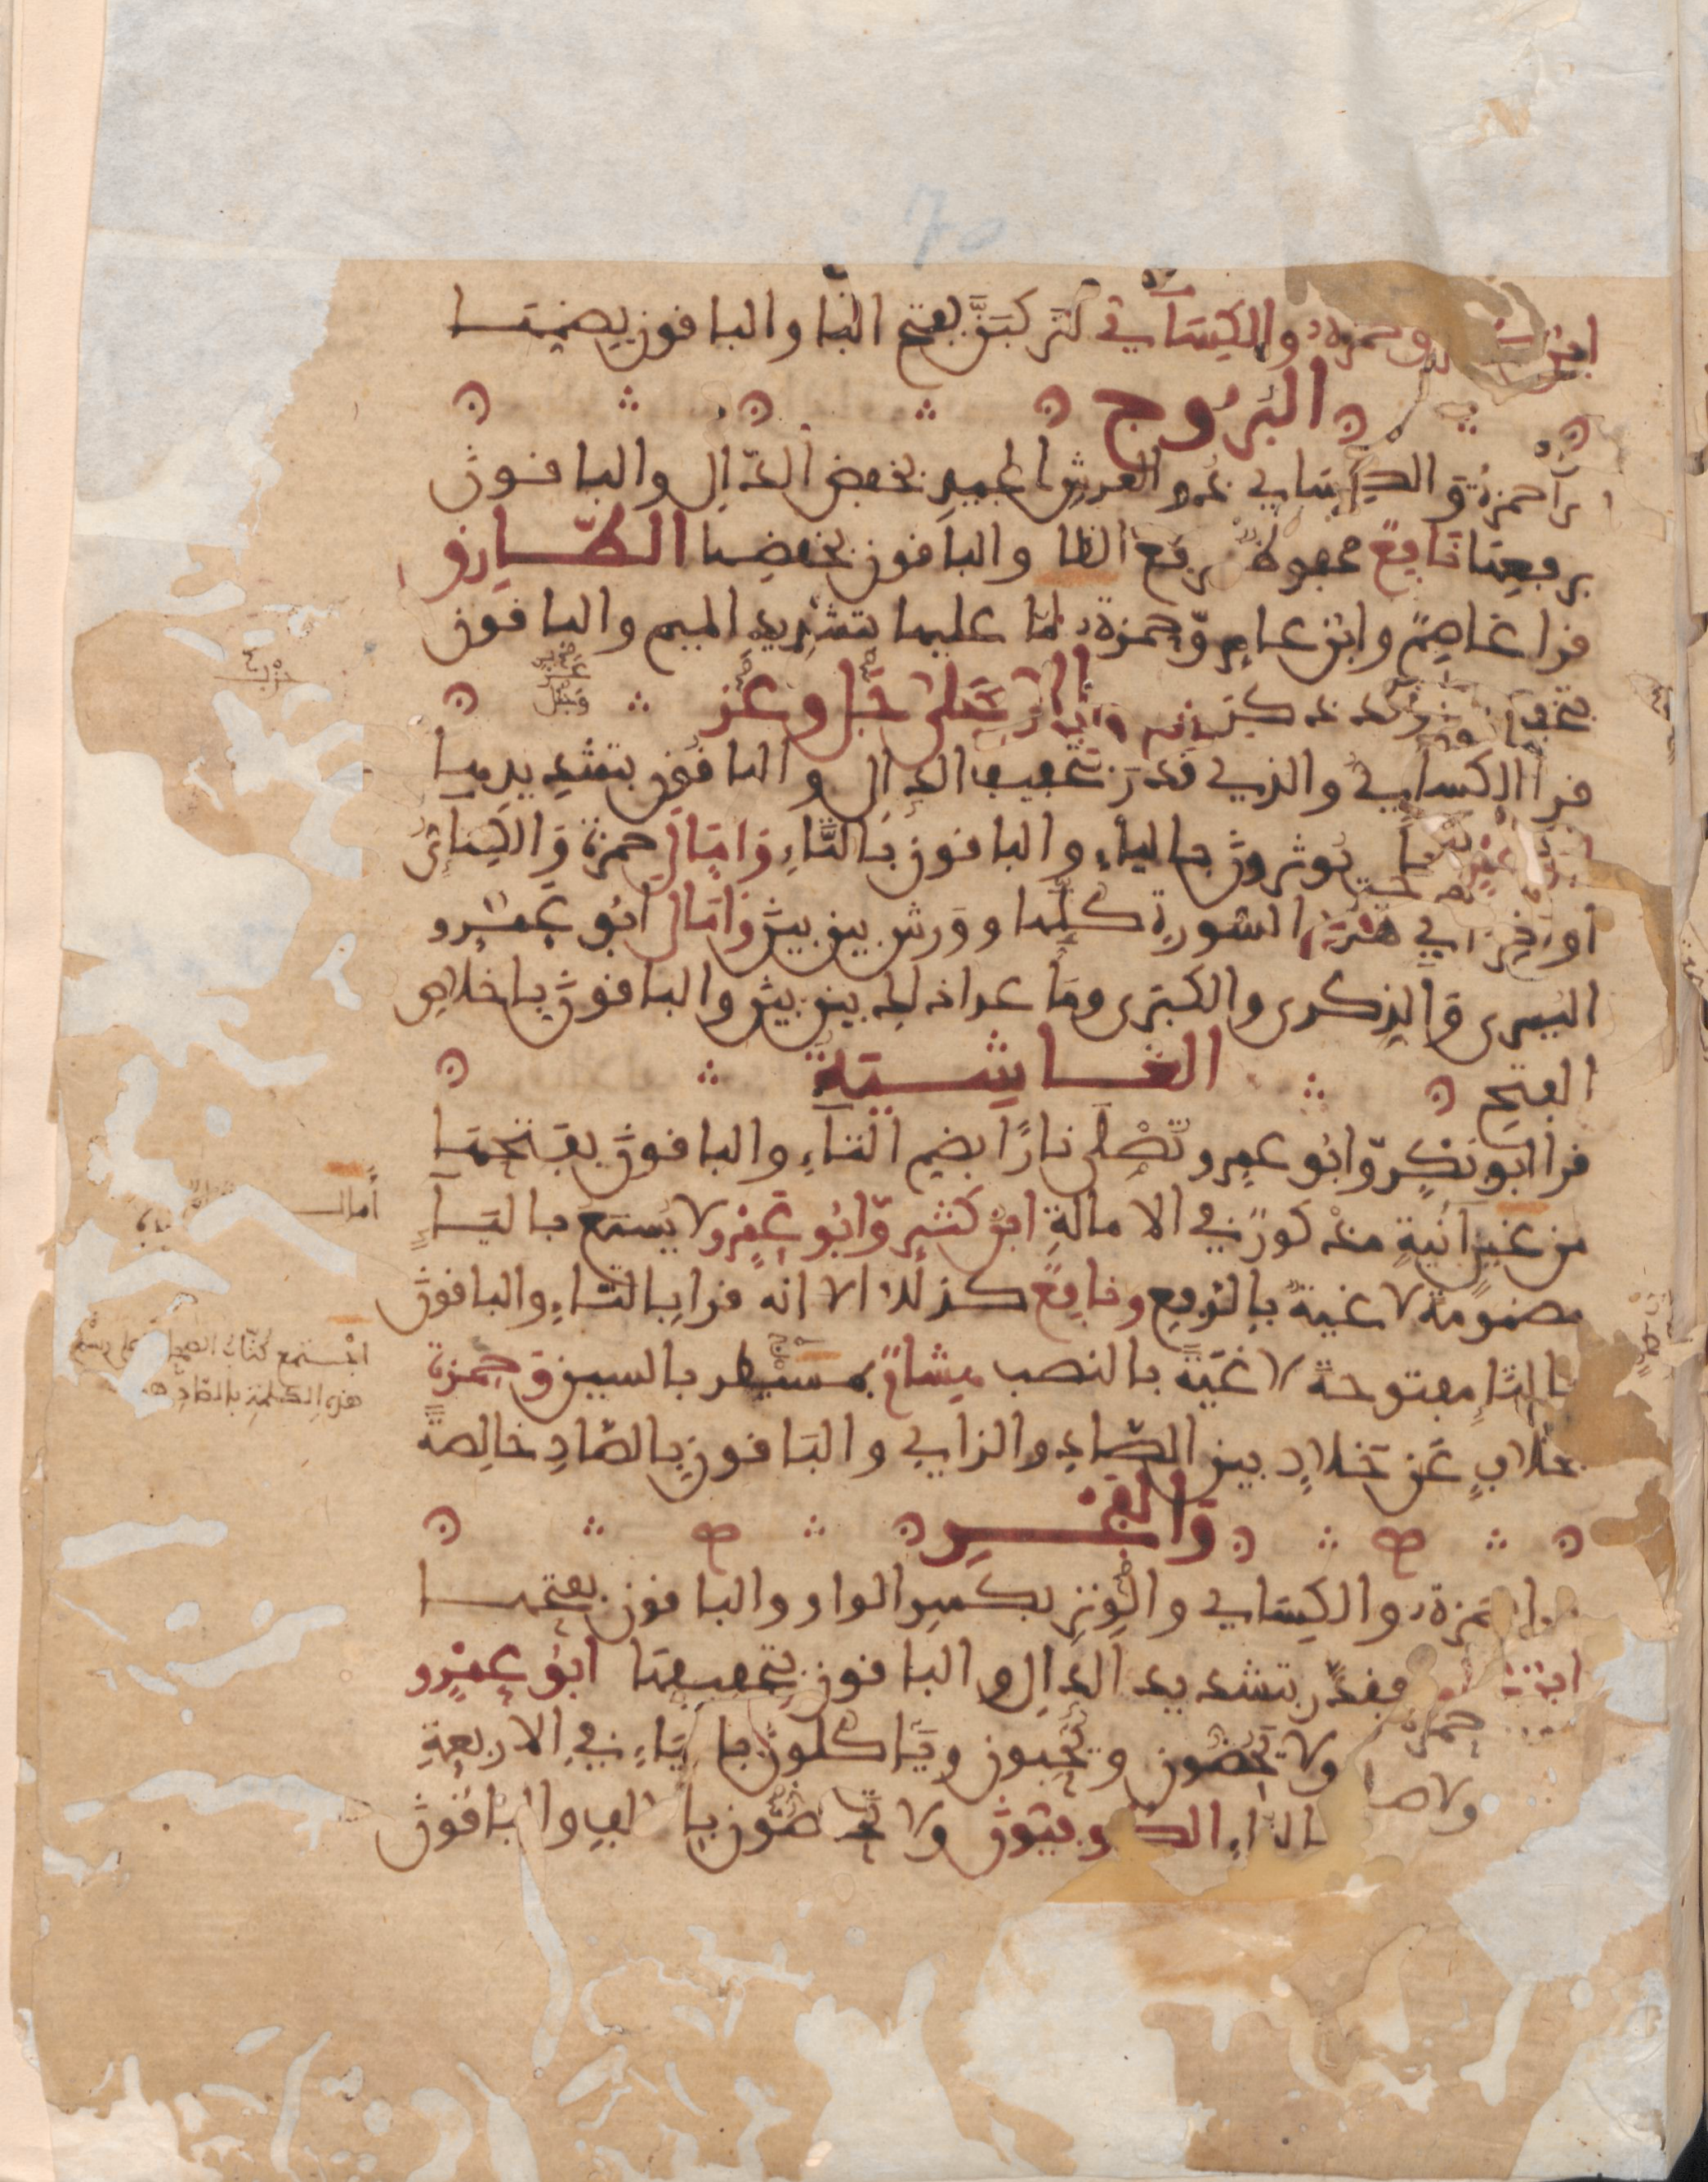 ابن كثير وحمزة والكسائي لتركبن بفتح البا والباقون بضمها
البروج
قرأ حمزة والكسائي ذو العرش المجيد بخفض الدال والباقون
برفعها نافع محفوظ برفع الظا والباقون بخفضها الطارق
قرا عاصم وابن عامر وحمزة لما عليها بتشديد الميم والباقون
الاعلى جل وعز
قرأ الكسائي والذي قدر بتخفيف الدال والباقون بتشديدها
ابو عمرو بل يوثرون بالياء والباقون بالتاء وامال حمزة والكسائي
اواخر اي هذه السورة كلها وورش بين بين وامال ابو عمرو
اليسرى والذكرى والكبرى وما عدا ذلك بين بين والباقون باخلاص
الفتح الغاشية
قرا ابو بكر وابو عمرو تصلى نارا بضم التاء والباقون بفتحها
من عين آنية مذكور في الامالة ابن كثير وابو عمرو لا يسمع بالياء
مضمومة لاغية بالرفع ونافع كذلك الا انه قرا بالتاء والباقون
بالتا مفتوحة لاغية بالنصب هشام بمسيطر بالسين وحمزة
بخلاف عن خلاد بين الصاد والزاي والباقون بالصاد خالصة
والفجر
حمزة والكسائي والوتر بكسر الواو والباقون بفتحها
ابن فقدر بتشديد الدال والباقون بتخفيفها ابو عمرو
ولا يحضون ويحبون وياكلون بالياء في الاربعة
ولا
بالتاء الكوفيون ولا تحاضون بالالف والباقون
أمال
اجتمع كتاب المصاحف على رسم
هذه الكلمة بالصاد